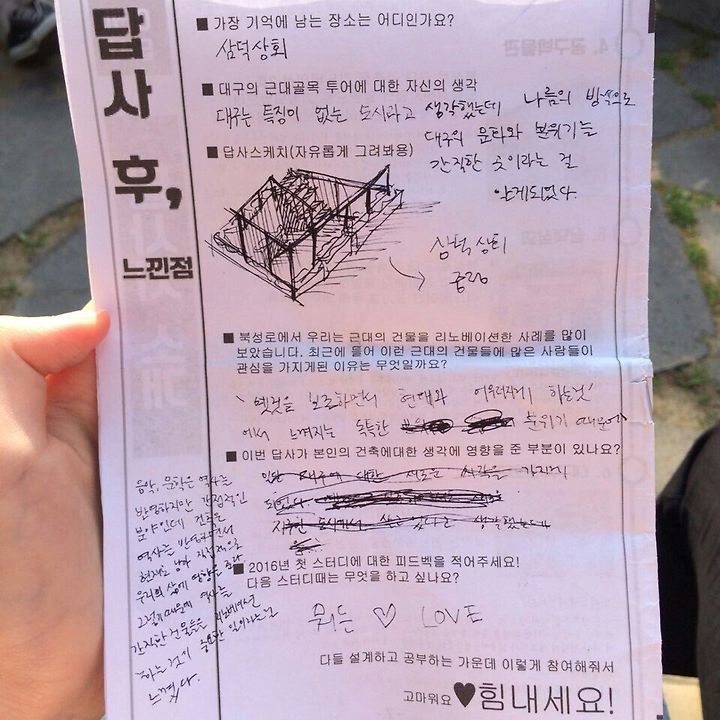 답사 후,
느낀점
■ 가장 기억에 남는 장소는 어디인가요?
삼덕상회
■ 대구의 근대골목 투어에 대한 자신의 생각
대구는 특징이 없는 도시라고 생각했는데 나름의 방식으로
대구의 문화와 분위기를
간직한 곳이라는 걸
알게되었다.
■ 답사스케치(자유롭게 그려봐용)
삼덕상회
중정
■ 북성로에서 우리는 근대의 건물을 리노베이션한 사례를 많이
보았습니다. 최근에 들어 이런 근대의 건물들에 많은 사람들이
관심을 가지게된 이유는 무엇일까요?
'옛것을 보존하면서 현대와 어우러지게 하는것'
에서 느껴지는 독특한 분위기 때문에
■ 이번 답사가 본인의 건축에대한 생각에 영향을 준 부분이 있나요?
일단 대구에 대한 새로운 시각을 가지게
되었다.
생각했는데
음악, 문학은 역사를
반영하지만 간접적인
분야인데 건축은
역사를 반영하면서
현재도 남아 직접적으로
우리의 삶에 영향을 준다
그렇기때문에 역사를
간직한 건물들을 리노베이션
하는 것이 중요한 일이라는걸
느꼈다.
■ 2016년 첫 스터디에 대한 피드벡을 적어주세요!
다음 스터디때는 무엇을 하고 싶나요?
뭐든 ♡ LOVE
다들 설계하고 공부하는 가운데 이렇게 참여해줘서
고마워요♥힘내세요!